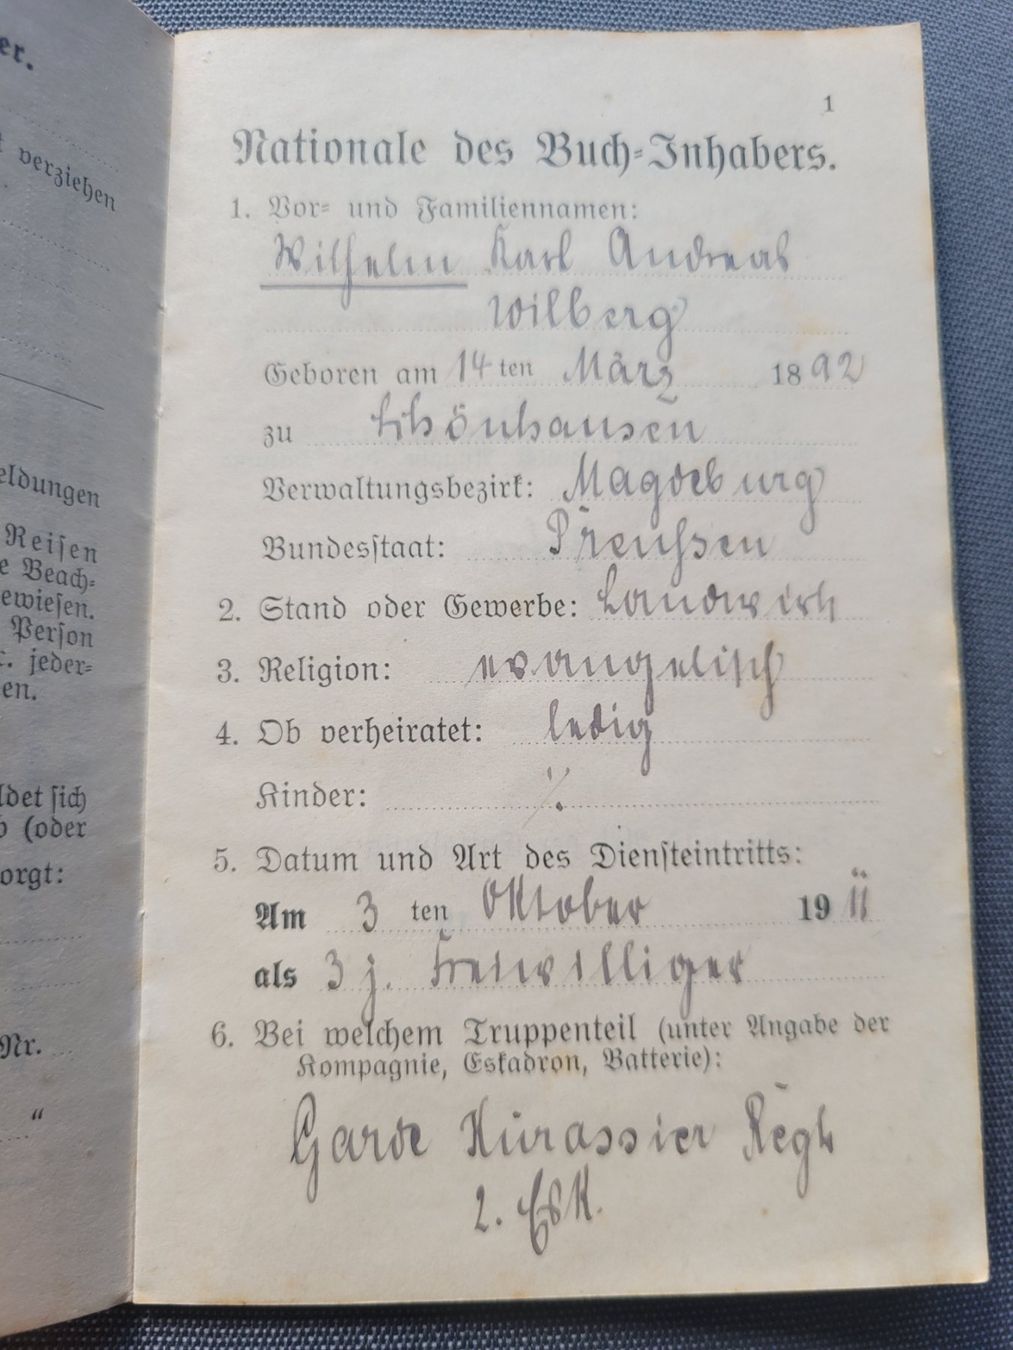 er.
verziehen
eldungen
Reisen
e Beach-
ewiesen.
Person
jeder-
en.
ldet sich
(oder
orgt:
Nr.
"
1
Nationale des Buch-Inhabers.
1. Vor- und Familiennamen:
Wilhelm Karl Andreas
Wilberg
Geboren am 14ten März 1892
zu Schönhausen
Verwaltungsbezirk: Magdeburg
Bundesstaat: Preussen
2. Stand oder Gewerbe: Landwirt
3. Religion: evangelisch
4. Ob verheiratet: ledig
Kinder: ./.
5. Datum und Art des Diensteintritts:
Am 3 ten Oktober 1911
als 3 j. Freiwilliger
6. Bei welchem Truppenteil (unter Angabe der
Kompagnie, Eskadron, Batterie):
Garde Kürassier Regt
2. Esk.